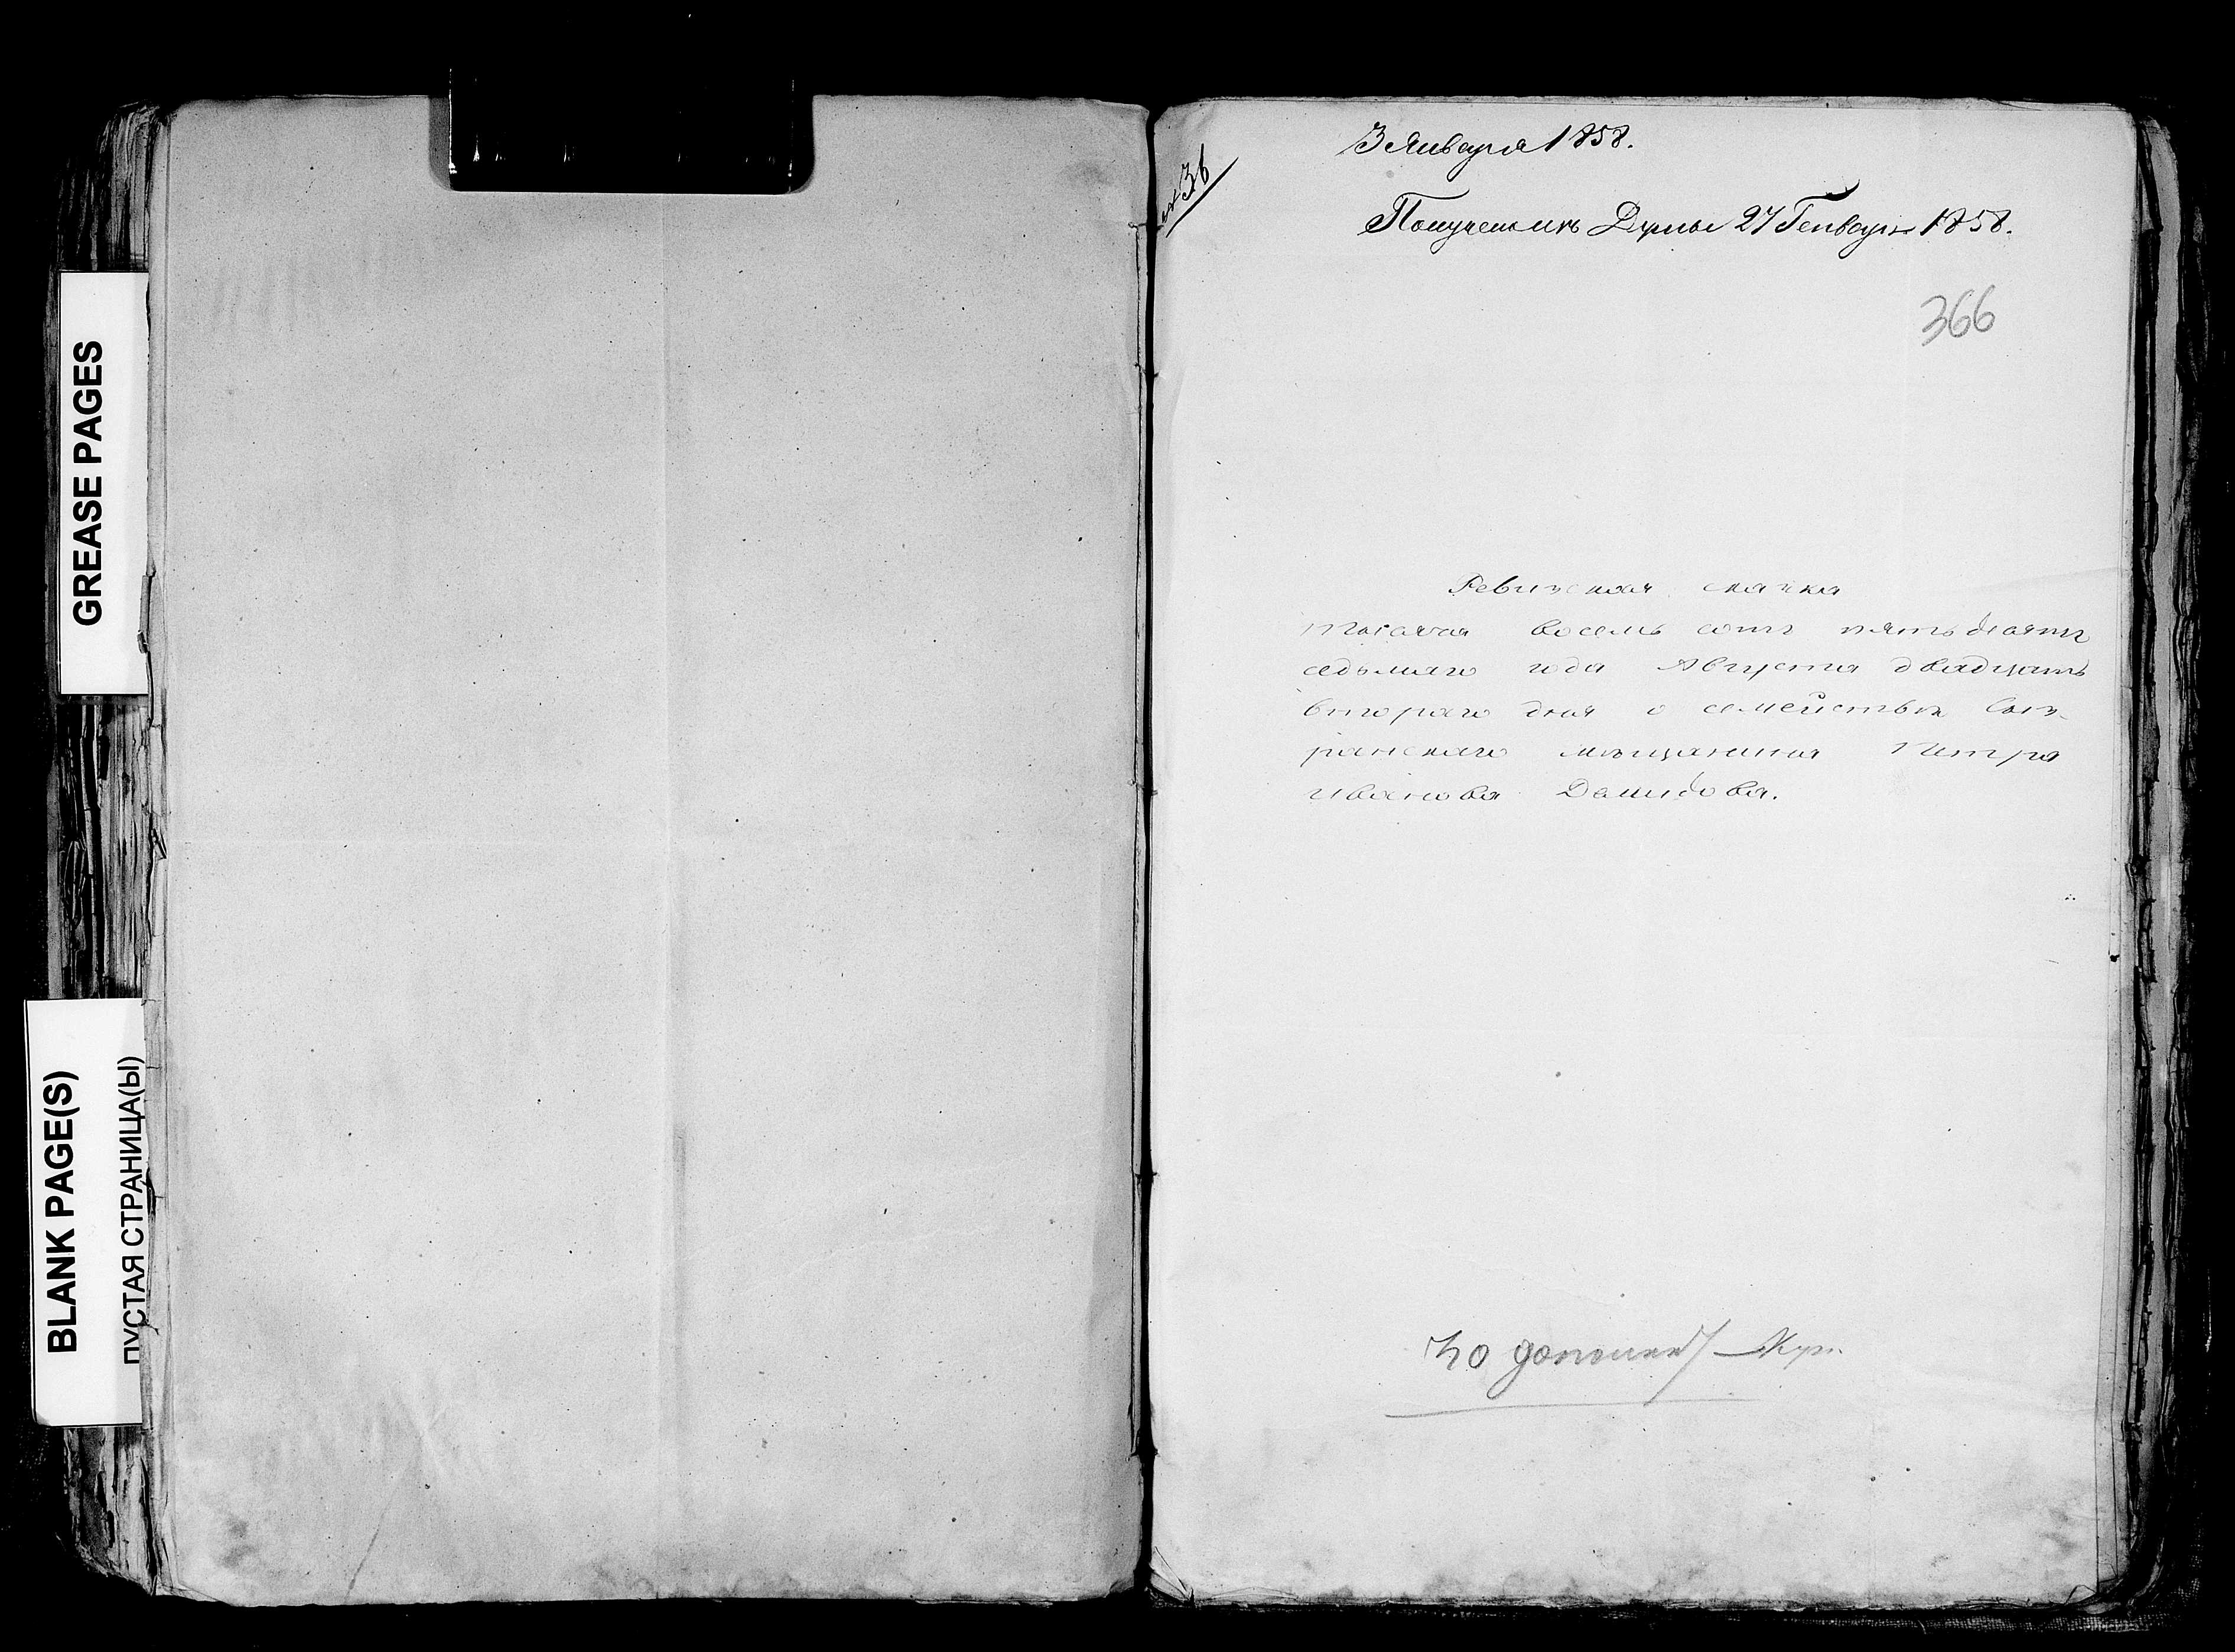 GREASE PAGES
BLANK PAGE(S)
ПУСТАЯ СТРАНИЦА(Ы)
3 Января 1858.
№ 36
Думы 27 Генваря 1858.
366
Ревизская сказка
тысяча восемь сотъ пятьдесятъ
седьмаго года Августа двадцать
втораго дня о семействѣ Сыз-
ранскаго мещанина Петра
Иванова Демидова.
По дополнен